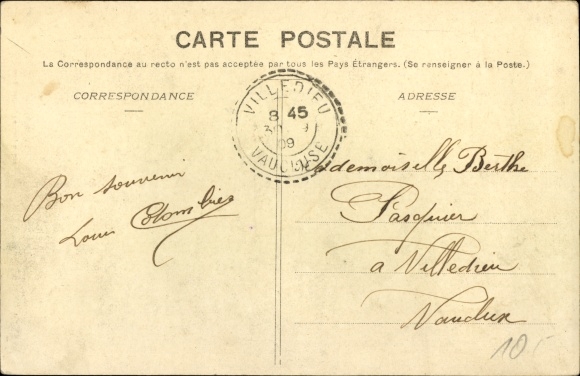 CARTE POSTALE
La Correspondance au recto n'est pas acceptée par tous les Pays Étrangers. (Se renseigner à la Poste.)
CORRESPONDANCE
ADRESSE
VILLEDIEU
8 45
30 9
09
VAUCLUSE
Bon souvenir
Louis Colombier
demoiselle Berthe
Pasquier
a Villedieu
Vaucluse
10